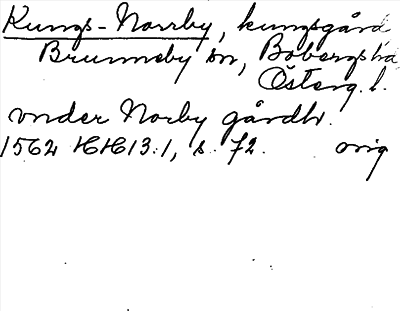 Kungs-Norrby, kungsgård
Brunneby sn, Bobergs hd
Österg. l.
vnder Norby gårdh.
1562 HH 13:1, s. 72. orig